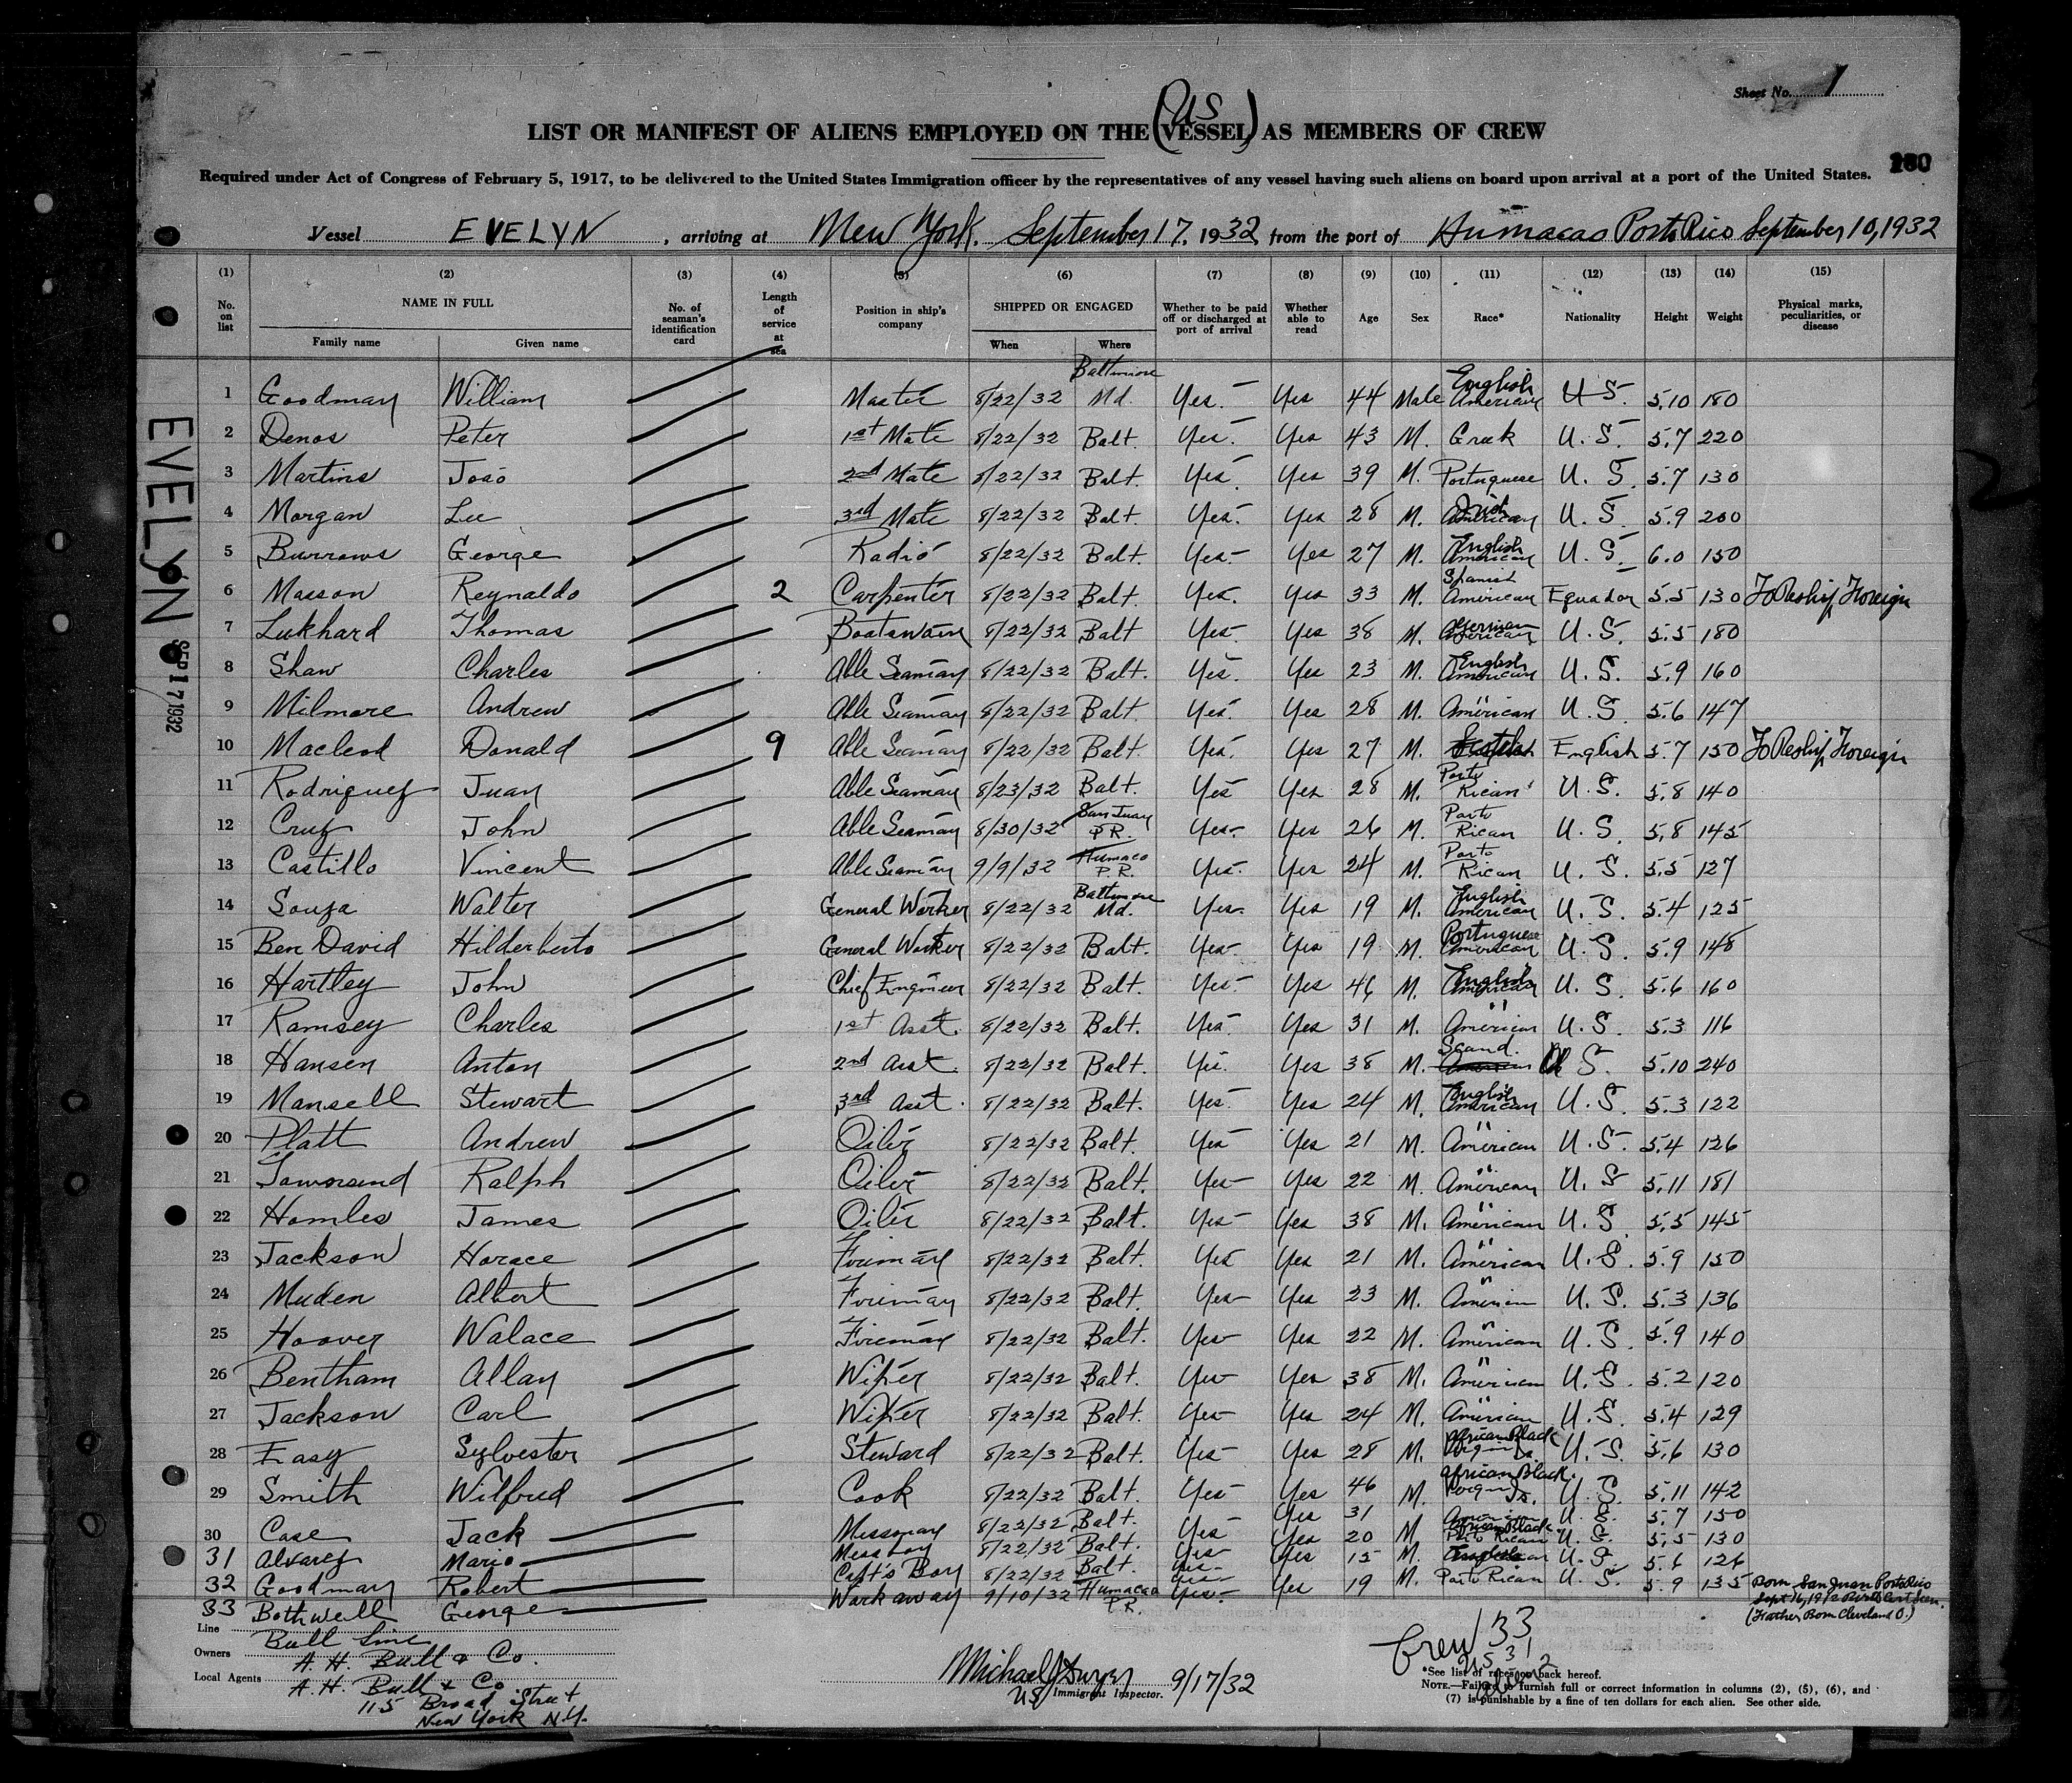 Sheet No. 1
(US)
LIST OR MANIFEST OF ALIENS EMPLOYED ON THE (VESSEL) AS MEMBERS OF CREW
Required under Act of Congress of February 5, 1917, to be delivered to the United States Immigration officer by the representatives of any vessel having such aliens on board upon arrival at a port of the United States.
Vessel EVELYN, arriving at New York. September 17, 1932 from the port of Humacao Porto Rico September 10, 1932
(1) (2) (3) (4) (5) (6) (7) (8) (9) (10) (11) (12) (13) (14) (15)
No. on list NAME IN FULL Family name Given name No. of seaman's identification card Length of service at sea Position in ship's company SHIPPED OR ENGAGED When Where Whether to be paid off or discharged at port of arrival Whether able to read Age Sex Race* Nationality Height Weight Physical marks, peculiarities, or disease
1 Goodman William Master 8/22/32 Baltimore Md. Yes. Yes 44 Male English American U S. 5.10 180
2 Denos Peter 1st Mate 8/22/32 Balt. Yes. Yes 43 M. Greek U. S. 5.7 220
3 Martins João 2nd Mate 8/22/32 Balt. Yes. Yes 39 M. Portuguese U. S. 5.7 130
4 Morgan Lee 3rd Mate 8/22/32 Balt. Yes. Yes 28 M. Irish American U. S. 5.9 200
5 Burrows George Radio 8/22/32 Balt. Yes. Yes 27 M. English American U. S. 6.0 150
6 Masson Reynaldo 2 Carpenter 8/22/32 Balt. Yes. Yes 33 M. Spanish American Equador 5.5 130 To Reship Foreign
7 Lukhard Thomas Boatswain 8/22/32 Balt Yes. Yes 38 M. German American U.S. 5.5 180
8 Shaw Charles Able Seaman 8/22/32 Balt. Yes. Yes 23 M. English American U.S. 5.9 160
9 Milmore Andrew Able Seaman 8/22/32 Balt. Yes. Yes 28 M. " American U.S. 5.6 147
10 Macleod Donald 9 Able Seaman 8/22/32 Balt. Yes. Yes 27 M. Scotch English 5.7 150 To Reship Foreign
11 Rodriguez Juan Able Seaman 8/23/32 Balt. Yes Yes 28 M. Porto Rican U.S. 5.8 140
12 Cruz John Able Seaman 8/30/32 San Juan P.R. Yes. Yes 26 M. Porto Rican U.S. 5.8 145
13 Castillo Vincent Able Seaman 9/9/32 Humaco P.R. Yes. Yes 24 M. Porto Rican U.S. 5.5 127
14 Souza Walter General Worker 8/22/32 Baltimore Md. Yes. Yes 19 M. English American U.S. 5.4 125
15 Ben David Hilderberto General Worker 8/22/32 Balt. Yes. Yes 19 M. Portuguese American U.S. 5.9 148
16 Hartley John Chief Engineer 8/22/32 Balt. Yes. Yes 46 M. English American U.S. 5.6 160
17 Ramsey Charles 1st Asst. 8/22/32 Balt. Yes Yes 31 M. " American U.S. 5.3 116
18 Hansen Anton 2nd Asst. 8/22/32 Balt. Yes. Yes 38 M. Scand. American U S. 5.10 240
19 Mansell Stewart 3rd Asst. 8/22/32 Balt. Yes. Yes 24 M. English American U.S. 5.3 122
20 Platt Andrew Oiler 8/22/32 Balt. Yes Yes 21 M. " American U.S. 5.4 126
21 Townsend Ralph Oiler 8/22/32 Balt. Yes Yes 22 M. " American U.S 5.11 181
22 Homles James Oiler 8/22/32 Balt. Yes Yes 38 M. " American U.S 5.5 145
23 Jackson Horace Fireman 8/22/32 Balt. Yes Yes 21 M. " American U.S. 5.9 150
24 Muden Albert Fireman 8/22/32 Balt. Yes Yes 23 M. " American U.S. 5.3 136
25 Hoover Walace Fireman 8/22/32 Balt. Yes Yes 22 M. " American U.S. 5.9 140
26 Bentham Allan Wiper 8/22/32 Balt. Yes Yes 38 M. " American U.S. 5.2 120
27 Jackson Carl Wiper 8/22/32 Balt. Yes Yes 24 M. " American U.S. 5.4 129
28 Easy Sylvester Steward 8/22/32 Balt. Yes Yes 28 M. African Black Virgin Is. U.S. 5.6 130
29 Smith Wilfred Cook 8/22/32 Balt. Yes Yes 46 M. African Black Virgin Is. U.S. 5.11 142
30 Case Jack Messman 8/22/32 Balt. Yes Yes 31 M American U.S. 5.7 150
31 Alvarez Mario Messboy 8/22/32 Balt. Yes Yes 20 M. African Black Porto Rican U.S. 5.5 130
32 Goodman Robert Capt's Boy 8/22/32 Balt. Yes Yes 15 M. English U.S. 5.6 126
33 Bothwell George Work away 9/10/32 Humacao P.R. Yes. Yes 19 M. Porto Rican U.S. 5.9 135 Born San Juan Porto Rico Sept 16, 1912 Birth Cert Seen. (Father Born Cleveland O.)
Line Bull Line
Owners A. H. Bull & Co.
Local Agents A. H. Bull & Co
115 Broad Street
New York N.Y.
Michael J Dwyer 9/17/32
US Immigrant Inspector.
Crew 33
US 31
Alien 2
*See list of races on back hereof.
NOTE.—Failure to furnish full or correct information in columns (2), (5), (6), and (7) is punishable by a fine of ten dollars for each alien. See other side.
EVELYN
SEP 17 1932
2